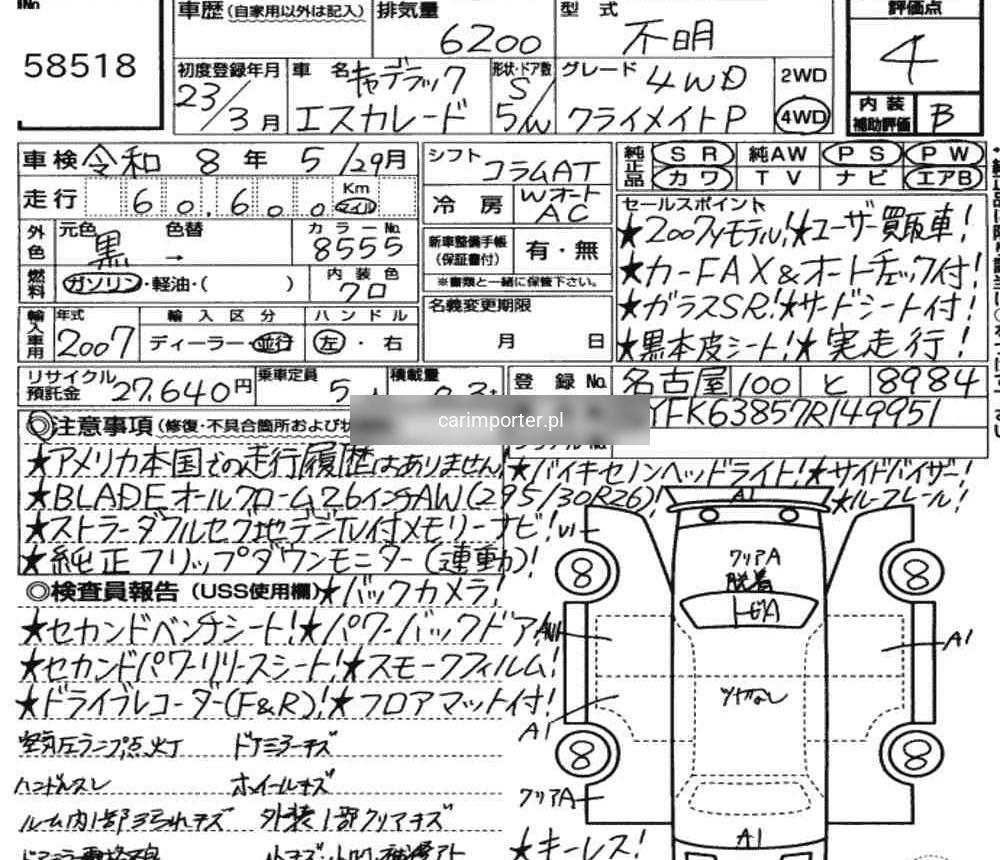 No
58518
車歴(自家用以外は記入)
排気量
6200
型式
不明
評価点
4
初度登録年月
23/3月
車名
キャデラック
エスカレード
形状・ドア数
5/W
グレード
4WD
クライメイトP
2WD
4WD
内装補助評価
B
車検 令和 8年 5/29月
走行 60,600 Km マイル
外色 元色 黒 色替 → カラーNo. 8555
燃料 ガソリン・軽油・( )
内装色 クロ
輸入車用 年式 2007
輸入区分 ディーラー・並行
ハンドル 左・右
シフト コラムAT
冷房 Wオート AC
新車整備手帳(保証書付) 有・無
※書類と一緒に保管下さい。
名義変更期限 月 日
純正品 SR 純AW PS PW
カワ TV ナビ エアB
セールスポイント
★2007yモデル!★ユーザー買取車!
★カーFAX&オートチェック付!
★ガラスSR!★サードシート付!
★黒本皮シート!★実走行!
リサイクル預託金 27,640円
乗車定員 5人
積載量
登録No. 名古屋 100 と 8984
YFK63857R149951
carimporter.pl
◎注意事項(修復・不具合箇所および
★アメリカ本国での走行履歴はありません
★バイキセノンヘッドライト!★サイドバイザー!
★BLADEオールクローム26インチAW(295/30R26)!
★ルーフレール!
★ストラーダフルセグ地デジTV付メモリーナビ!
★純正フリップダウンモニター(連動)!
◎検査員報告(USS使用欄)★バックカメラ!
★セカンドベンチシート!★パワーバックドア
★セカンドパワーリリースシート!★スモークフィルム!
★ドライブレコーダー(F&R)!★フロアマット付!
空気圧ランプ点灯 ドアミラーキズ
ハンドルスレ ホイールキズ
ルーム内1部 キズ 外装1部クリアキズ
A1
クリアA
脱着
トビA
ツヤなし
8
8
8
8
A1
A1
クリアA
A1
★キーレス!